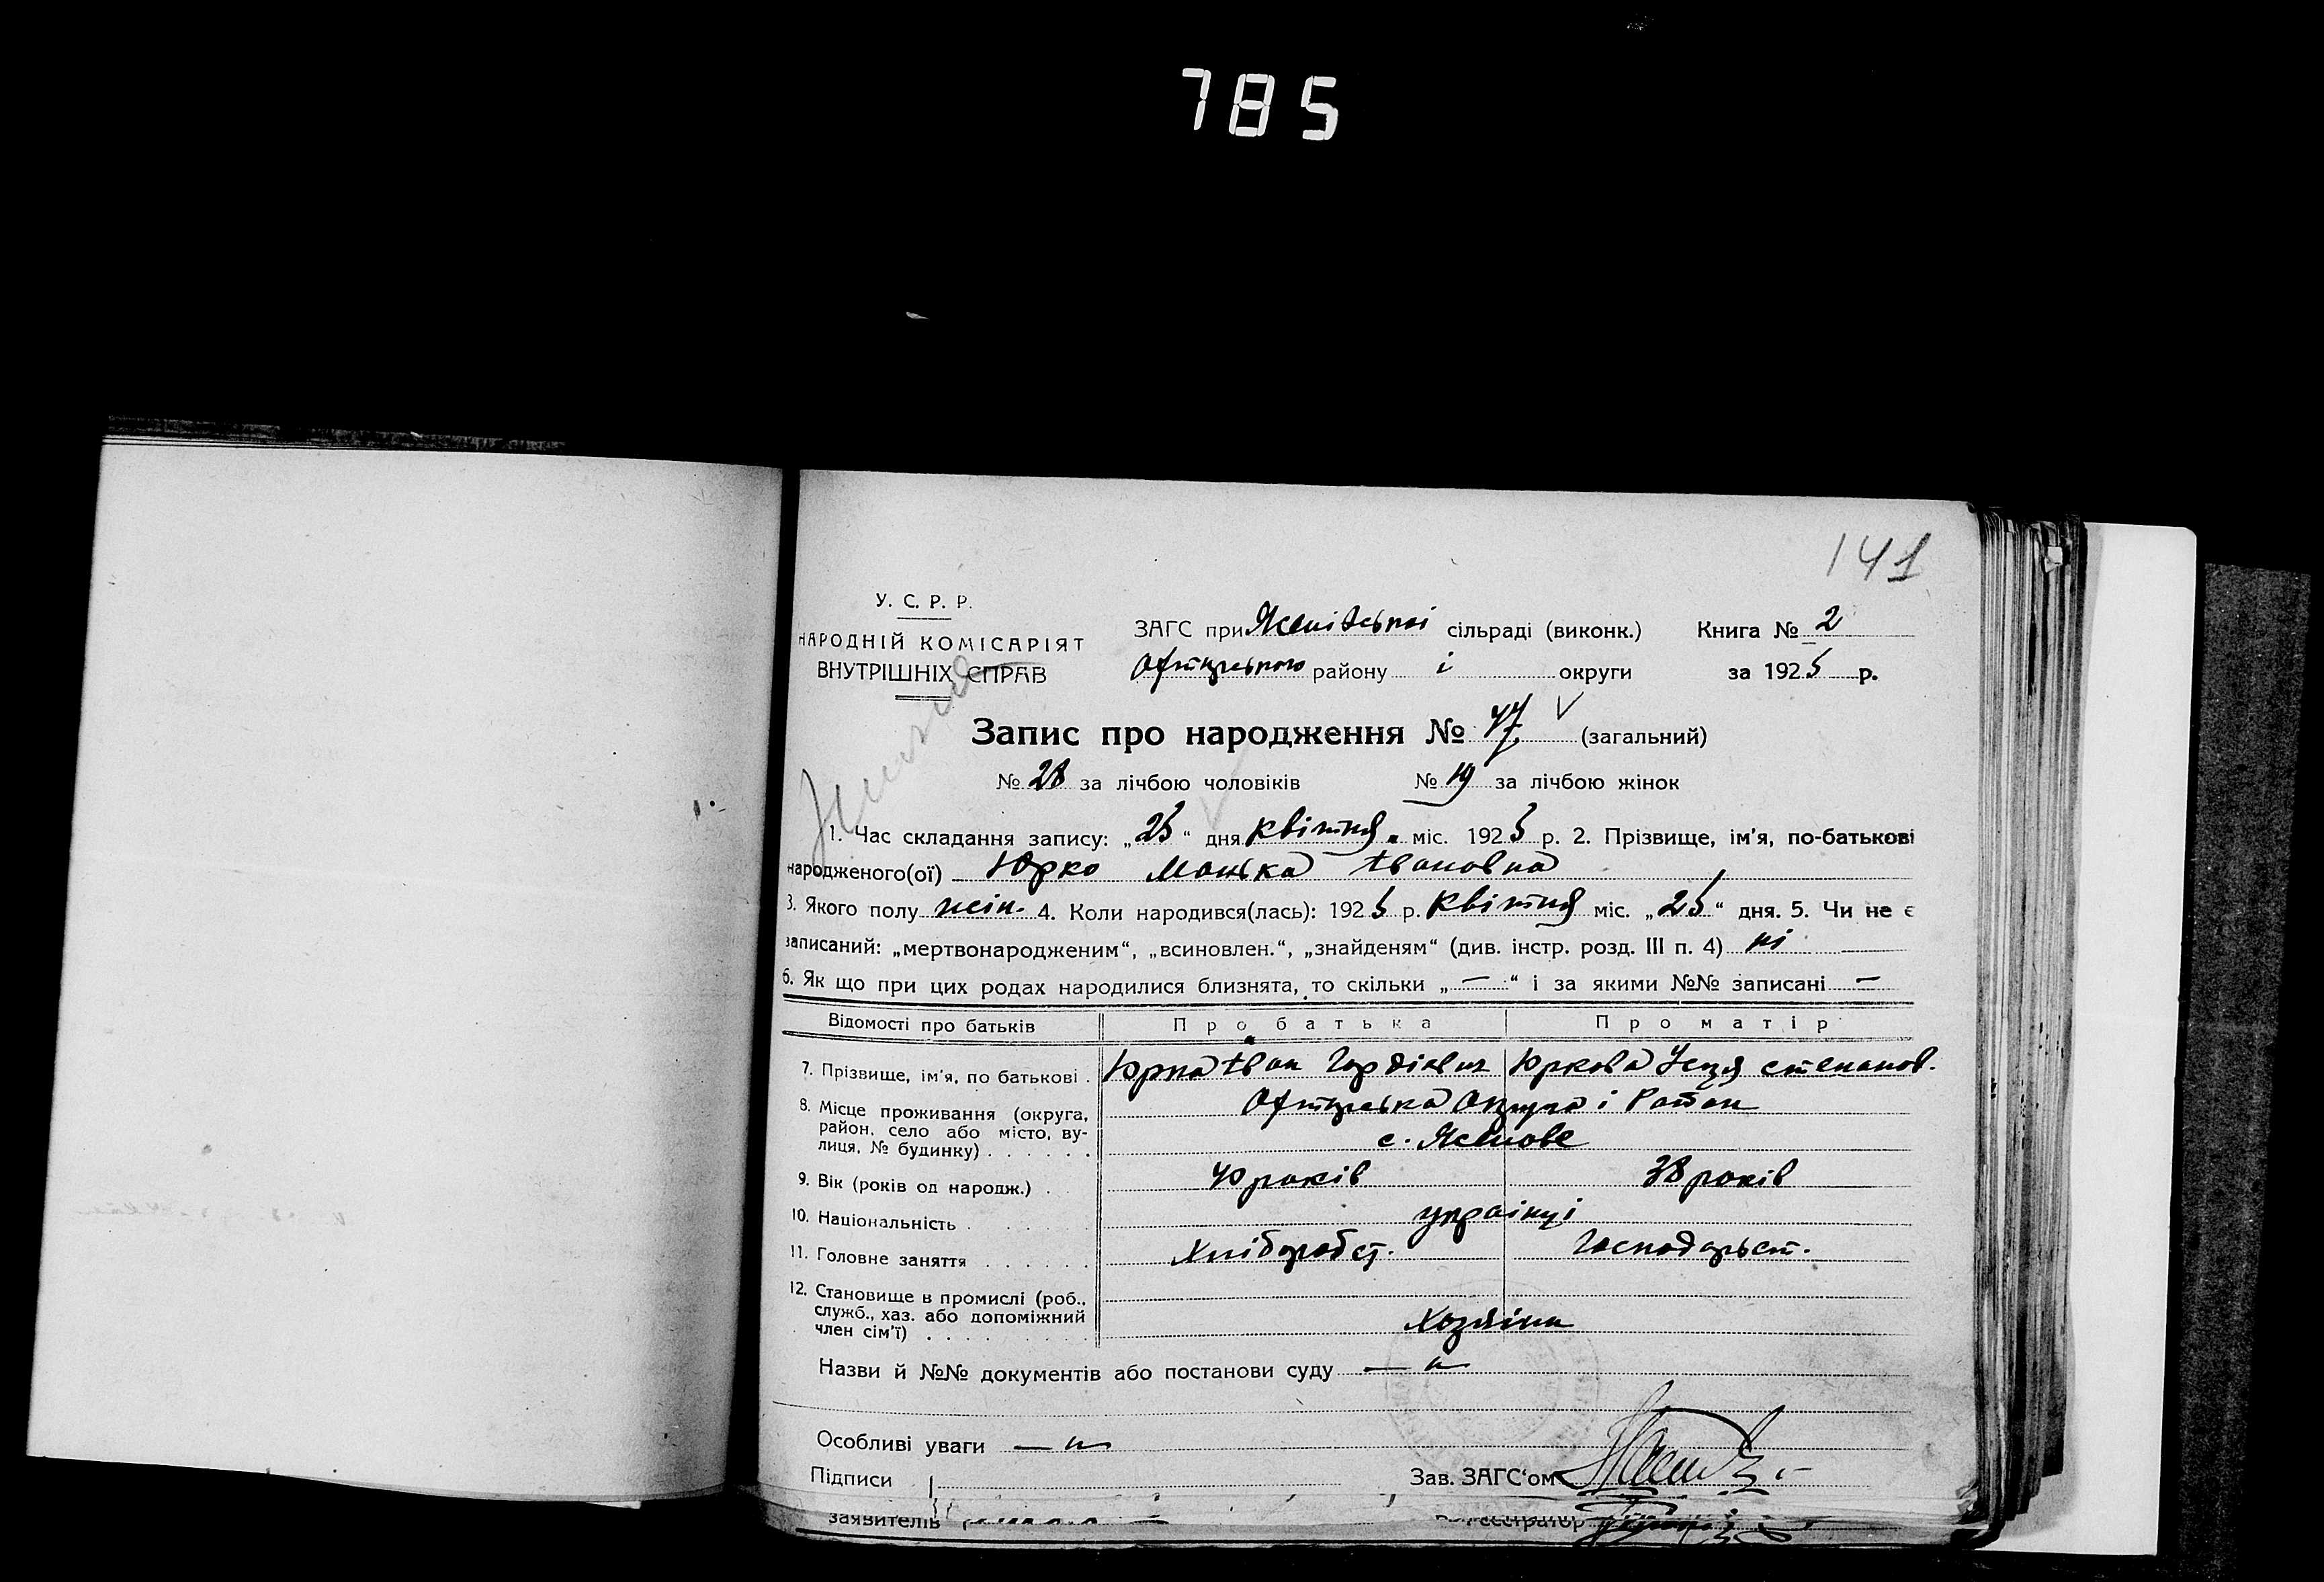 785
141
У. С. Р. Р.
НАРОДНІЙ КОМІСАРІЯТ
ВНУТРІШНІХ СПРАВ
ЗАГС при сільраді (виконк.) Книга № 2
району і округи за 1925 р.
Запис про народження № 47 (загальний)
№ 28 за лічбою чоловіків № 19 за лічбою жінок
1. Час складання запису: „25“ дня квітня міс. 1925 р. 2. Прізвище, ім'я, по-батькові
народженого(ої) Юрко Манька Івановна
3. Якого полу жін. 4. Коли народився(лась): 1925 р. квітня міс. „25“ дня. 5. Чи не є
записаний: „мертвонародженим“, „всиновлен.“, „знайденям“ (див. інстр. розд. III п. 4) ні
6. Як що при цих родах народилися близнята, то скільки „—“ і за якими №№ записані —
Відомості про батьків Про батька Про матір
7. Прізвище, ім'я, по батькові . Юрка Іван Гордієвич Юркова степанов.
8. Місце проживання (округа, Округа і Район
район, село або місто, ву-
лиця, № будинку) . . . . . . с. Ясенове
9. Вік (років од народж.) . 40 років 38 років
10. Національність . . . . . . українці
11. Головне заняття . . . . . . Хліборобст. Господарьст.
12. Становище в промислі (роб.,
служб., хаз. або допоміжний
член сім'ї) . . . . . . . . . Хозяїни
Назви й №№ документів або постанови суду — „
Особливі уваги — „
Підписи Зав. ЗАГС'ом
заявителів Реєстратор